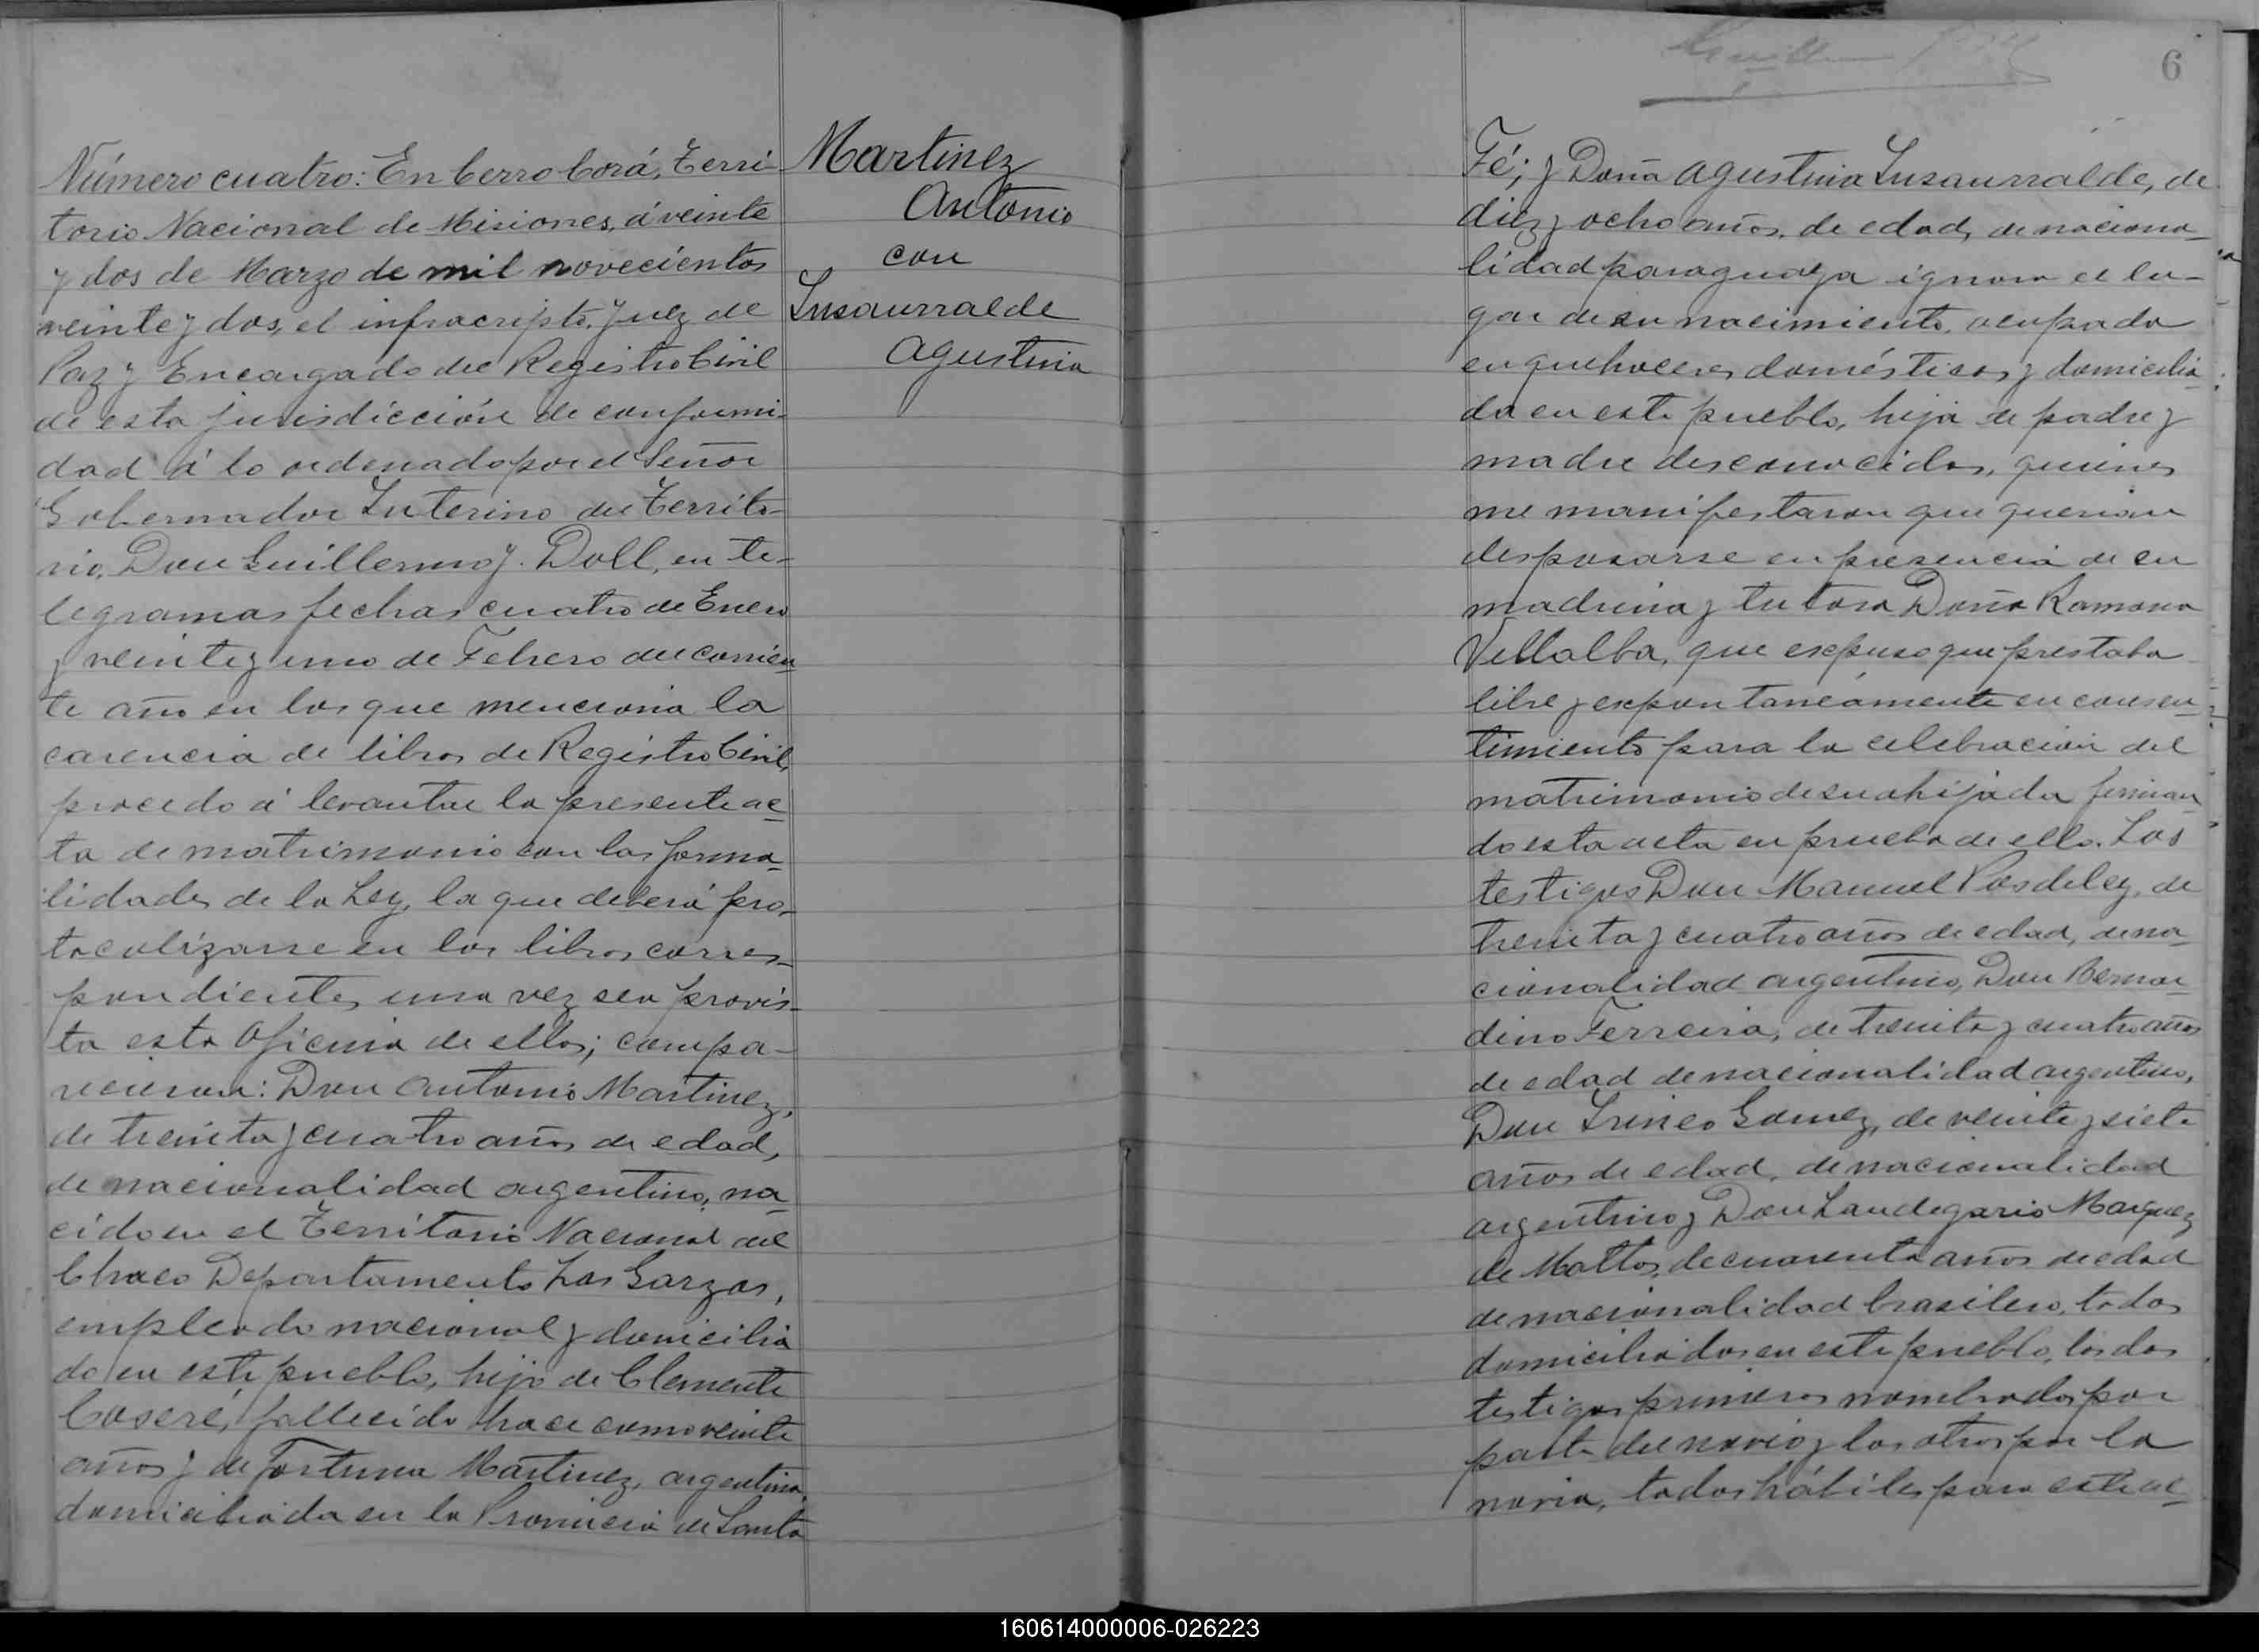 Número cuatro: En Cerro Corá, Terri-
torio Nacional de Misiones, á veinte
y dos de Marzo de mil novecientos
veinte y dos, el infrascripto, Juez de
Paz y Encargado del Registro Civil
de esta jurisdicción de conformi-
dad á lo ordenado por el Señor
Gobernador Interino del Territo-
rio, Don Guillermo J. Doll, en te-
legramas fechas cuatro de Enero
y veinte y uno de Febrero del corrien-
te año en los que menciona la
carencia de libros de Registro Civil,
procedo á levantar la presente ac-
ta de matrimonio con las forma-
lidades de la Ley, la que deberá pro-
tocolizarse en los libros corres-
pondientes una vez sea provis-
ta esta Oficina de ellos; compa-
recieron: Don Antonio Martinez,
de treinta y cuatro años de edad,
de nacionalidad argentino, na-
cido en el Territorio Nacional del
Chaco Departamento Las Garzas,
empleado nacional y domicilia
do en este pueblo, hijo de Clemente
Coseré, fallecido hace como veinte
años y de Fortuna Martinez, argentina,
domiciliada en la Provincia de Santa
Martinez
Antonio
con
Insaurralde
Agustina
6
Fé; y Doña Agustina Insaurralde, de
diez y ocho años de edad, de naciona-
lidad paraguaya ignora el lu-
gar de su nacimiento, ocupada
en quehaceres domésticos y domicilia-
da en este pueblo, hija de padre y
madre desconocidos, quienes
me manifestaron que querian
desposarse en presencia de su
madrina y tutora Doña Ramona
Villalba, que expuso que prestaba
libre y expontaneamente su consen-
timiento para la celebracion del
matrimonio de su ahijada firman-
do esta acta en prueba de ello. Los
testigos Don Manuel Posdeley, de
treinta y cuatro años de edad, de na-
cionalidad argentino, Don Bernar-
dino Ferreira, de treinta y cuatro años
de edad de nacionalidad argentino,
Don Irineo Gomez, de veinte y siete
años de edad, de nacionalidad
argentino y Don Laudegario Marquez
de Mattos, de cuarenta años de edad
de nacionalidad brasilero, todos
domiciliados en este pueblo, los dos
testigos primeros nombrados por
parte del novio y los otros por la
novia, todos hábiles para este ac-
160614000006-026223